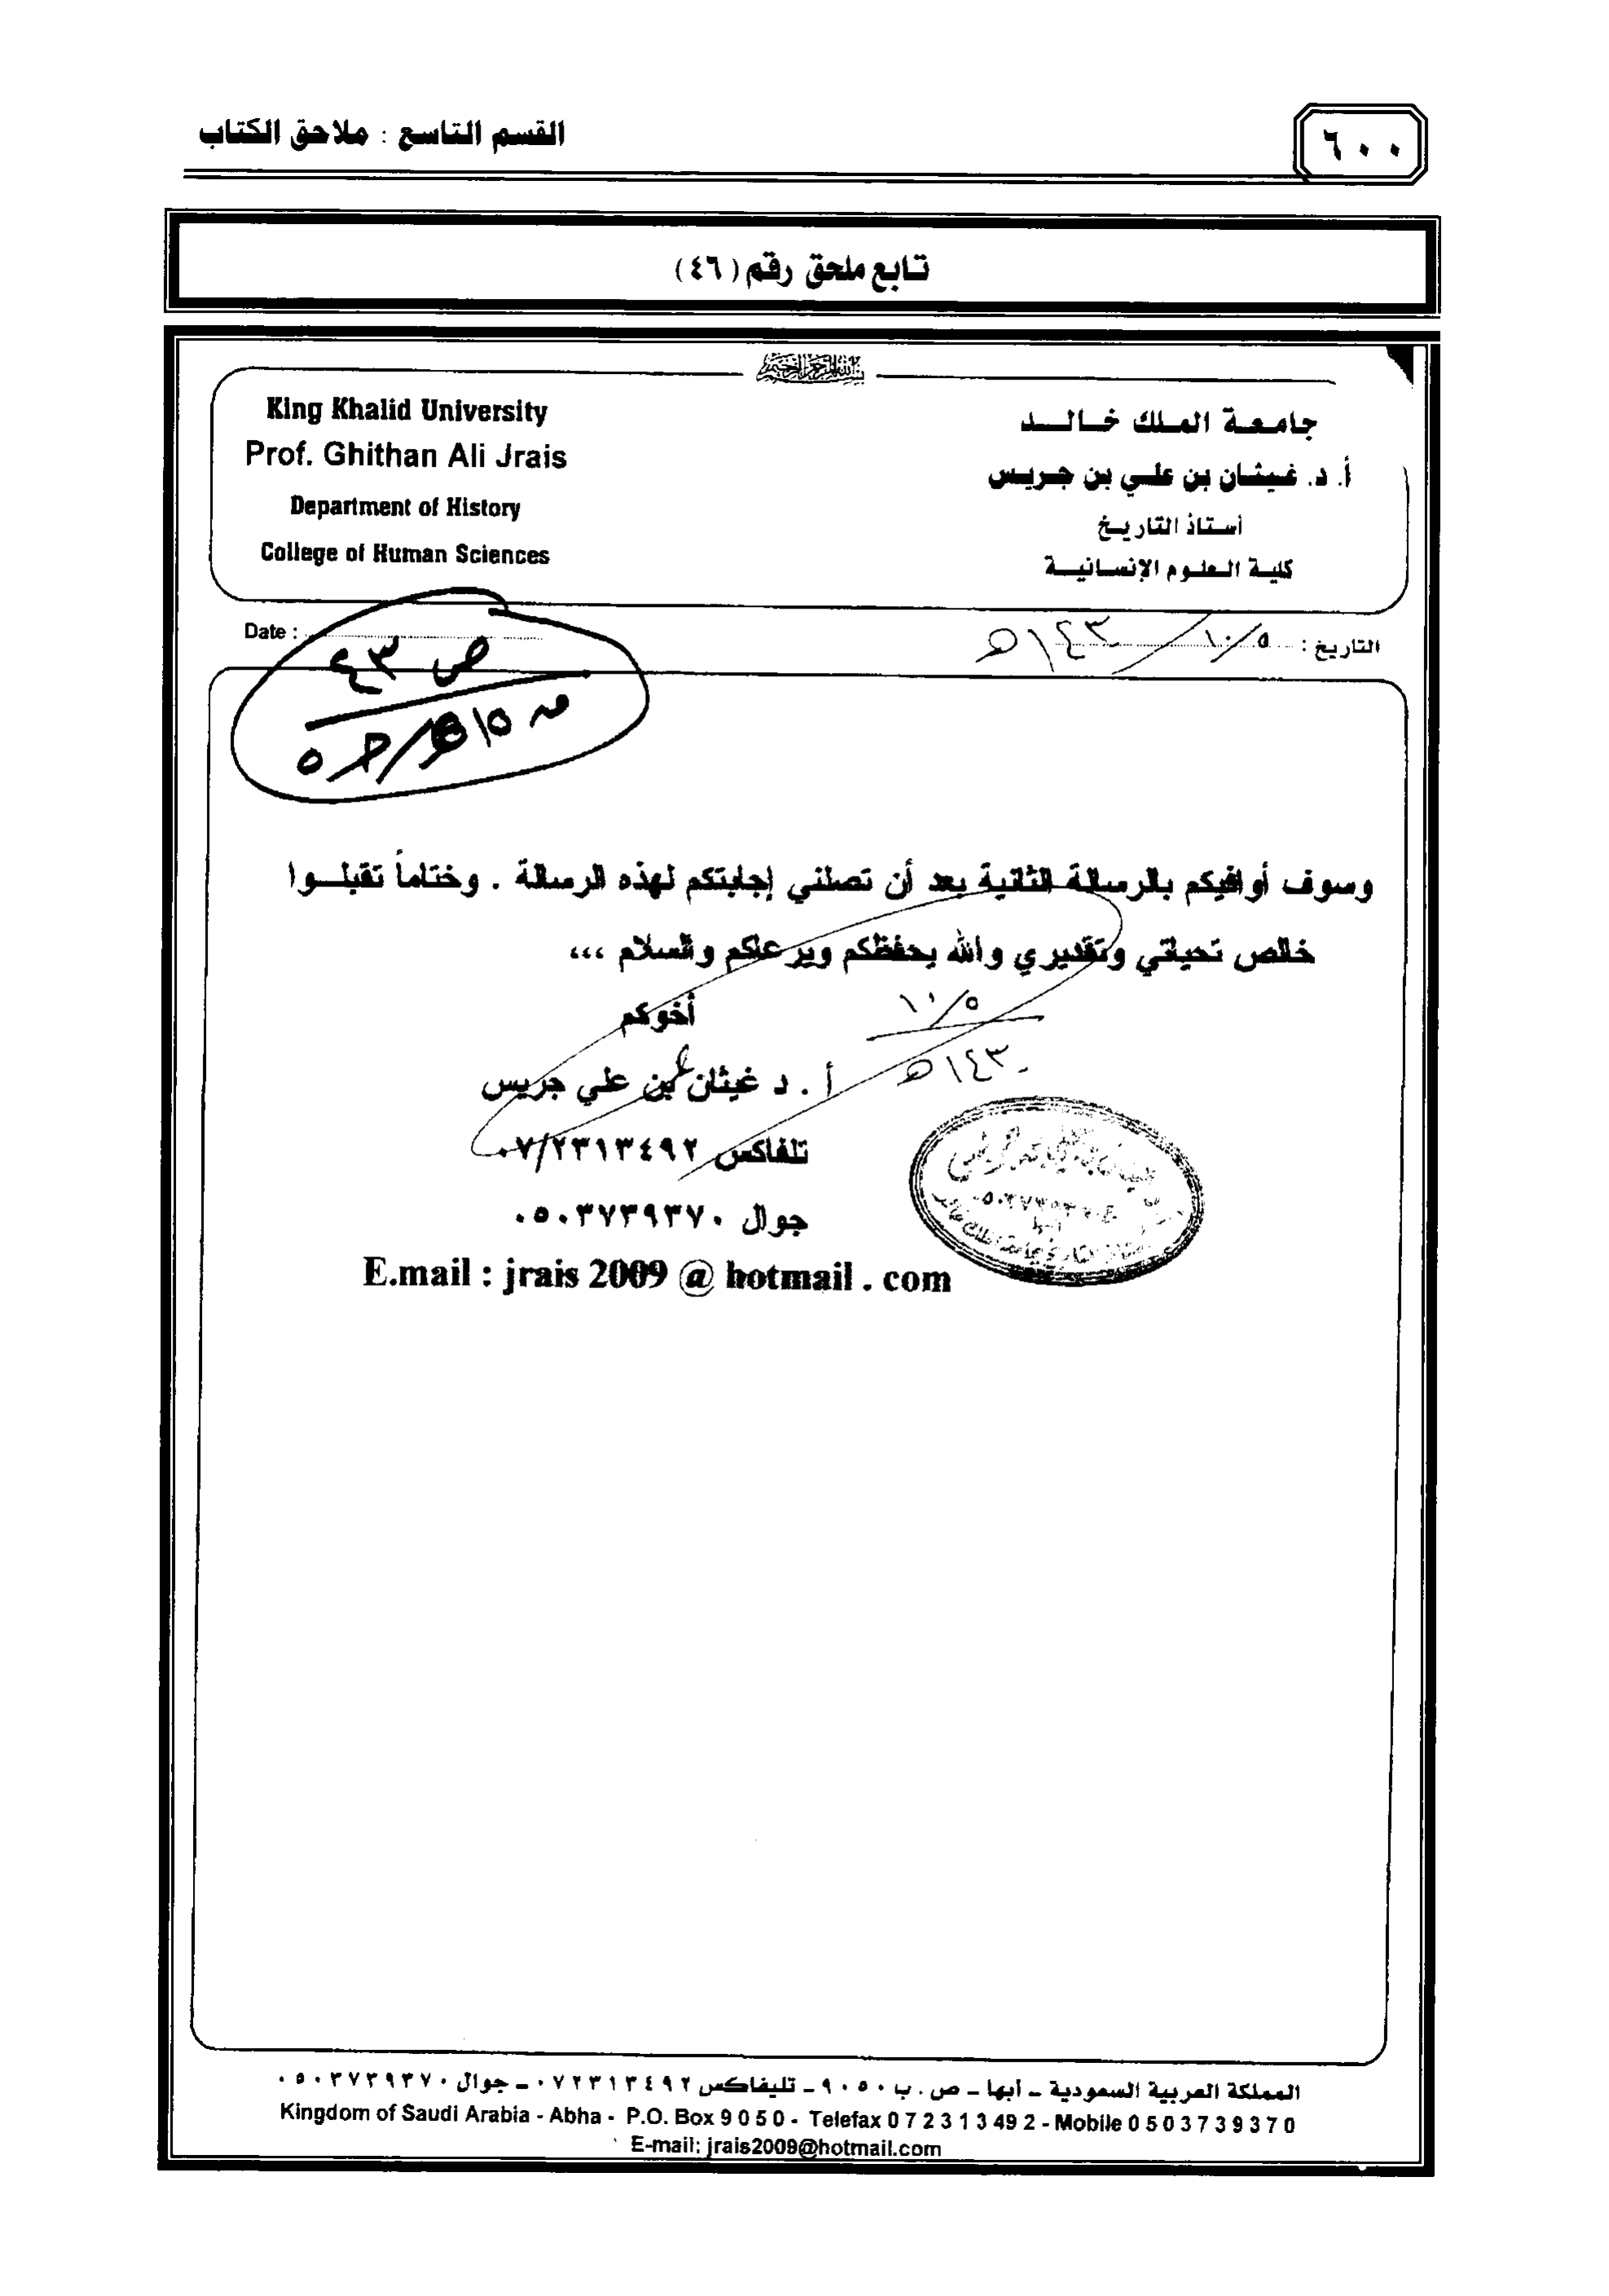 ٦٠٠
القسم التاسع : ملاحق الكتاب
تابع ملحق رقم (٤٦)
بسم الله الرحمن الرحيم
جامعة الملك خالد
أ. د. غيثان بن علي بن جريس
أستاذ التاريخ
كلية العلوم الإنسانية
King Khalid University
Prof. Ghithan Ali Jrais
Department of History
College of Human Sciences
التاريخ : ١٠/٥/١٤٣٠هـ
Date :
ص ٤٣
وسوف أوافيكم بالرسالة الثانية بعد أن تصلني إجابتكم لهذه الرسالة . وختاماً تقبلوا
خالص تحياتي وتقديري والله يحفظكم ويرعاكم والسلام ،،،
أخوكم
١٠/٥
١٤٣٠هـ
أ . د غيثان بن علي جريس
تلفاكس ٠٧/٢٣١٣٤٩٢
جوال ٠٥٠٣٧٣٩٣٧٠
E.mail : jrais 2009 @ hotmail . com
المملكة العربية السعودية - أبها - ص . ب ٩٠٥٠ - تليفاكس ٠٧٢٣١٣٤٩٢ - جوال ٠٥٠٣٧٣٩٣٧٠
Kingdom of Saudi Arabia - Abha - P.O. Box 9 0 5 0 - Telefax 0 7 2 3 1 3 49 2 - Mobile 0 5 0 3 7 3 9 3 7 0
E-mail: jrais2009@hotmail.com